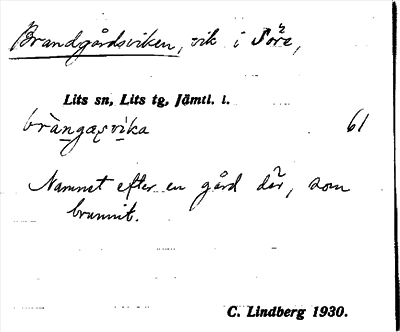 Brandgårdsviken, vik i Söre,
Lits sn, Lits tg, Jämtl. l.
bràngaṣvika 61
Namnet efter en gård där, som
brunnit.
C. Lindberg 1930.